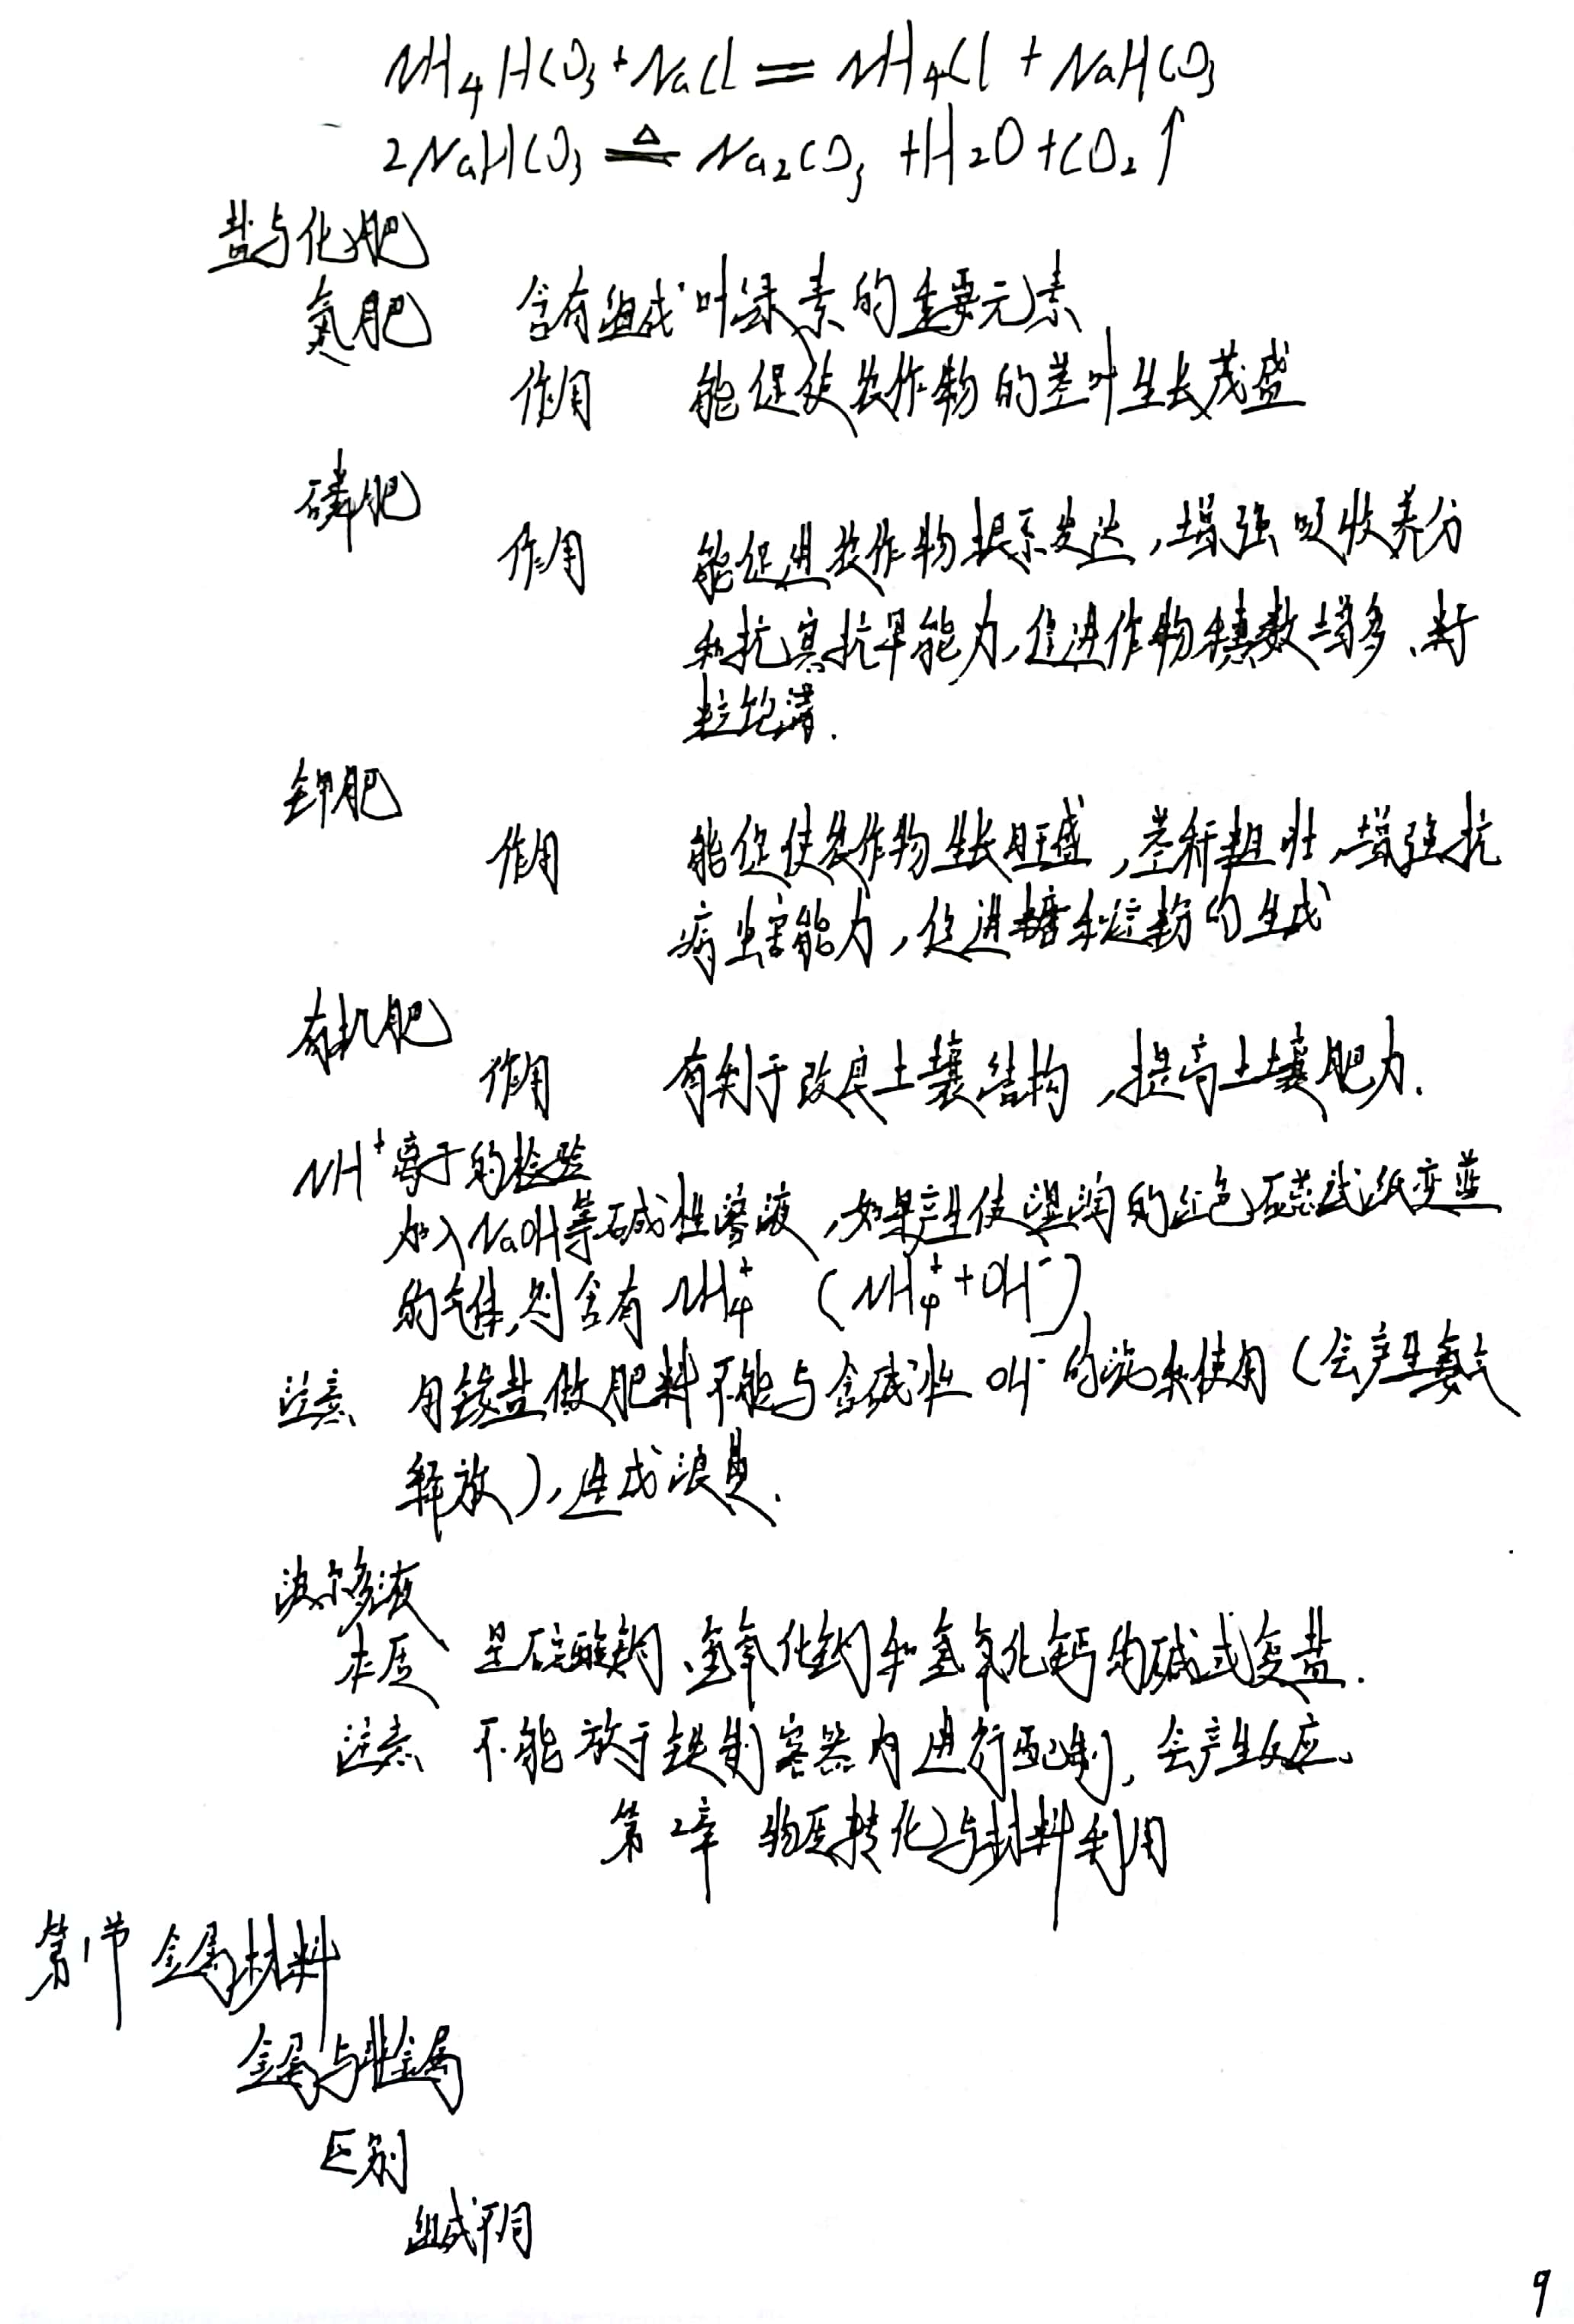 NH₄HCO₃+NaCl═NH₄Cl+NaHCO₃
2NaHCO₃≜Na₂CO₃+H₂O+CO₂↑
盐与化肥
氮肥 含有组成叶绿素的重要元素
作用 能促使农作物的茎叶生长茂盛
磷肥
作用 能促进农作物根系发达,增强吸收养分
和抗寒抗旱能力,促进作物穗数增多、籽
粒饱满.
钾肥
作用 能促使农作物生长旺盛,茎秆粗壮,增强抗
病虫害能力,促进糖和淀粉的生成
有机肥
作用 有利于改良土壤结构,提高土壤肥力.
NH⁺离子的检验
加入NaOH等碱性溶液,如果产生使湿润的红色石蕊试纸变蓝
的气体,则含有NH₄⁺ (NH₄⁺+OH⁻)
注意 用铵盐做肥料不能与含碱性OH⁻的物质使用(会产生氨气
释放),造成浪费.
波尔多液
本质 是硫酸铜、氢氧化铜和氢氧化钙的碱式复盐.
注意 不能放于铁制容器内进行配制,会产生反应.
第2章 物质转化与材料利用
第1节 金属材料
金属与非金属
区别
组成不同
9